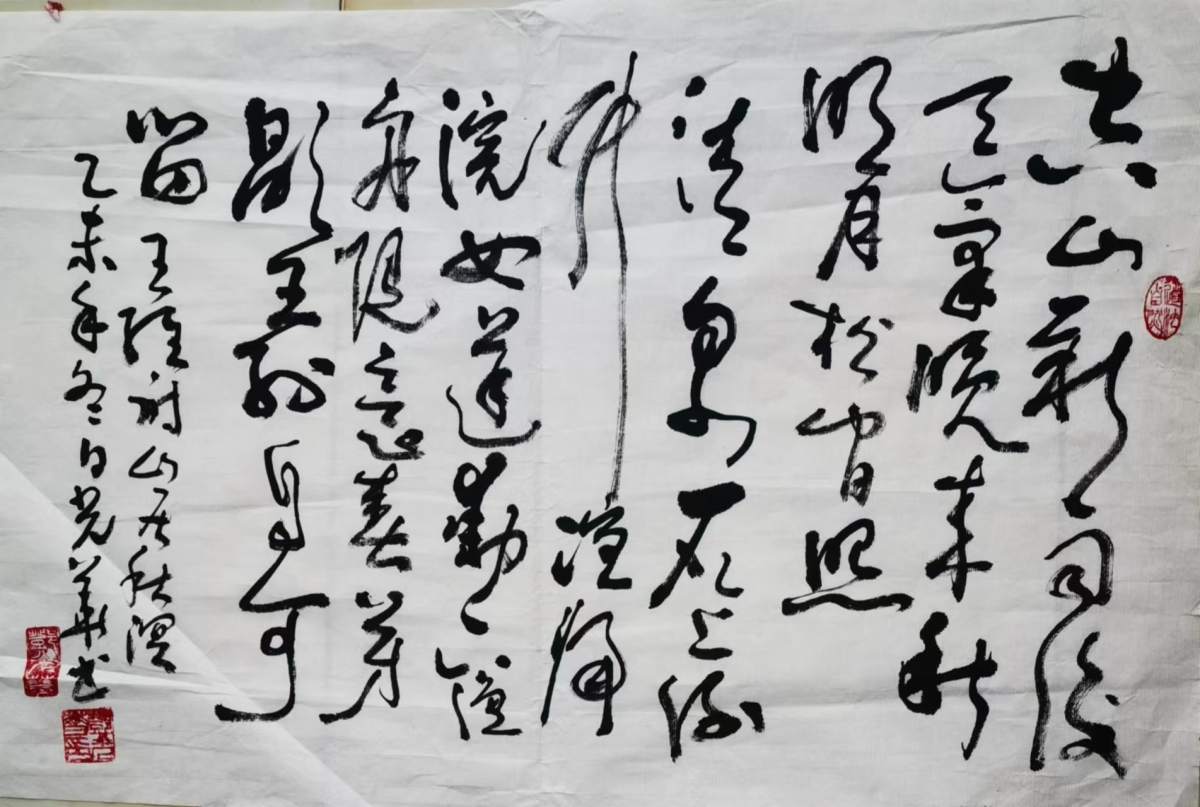 空山新雨後
天氣晚來秋
明月松間照
清泉石上流
竹喧歸
浣女蓮動下漁
舟隨意春芳
歇王孫自可
留 王維詩山居秋暝
乙未年冬日光華書